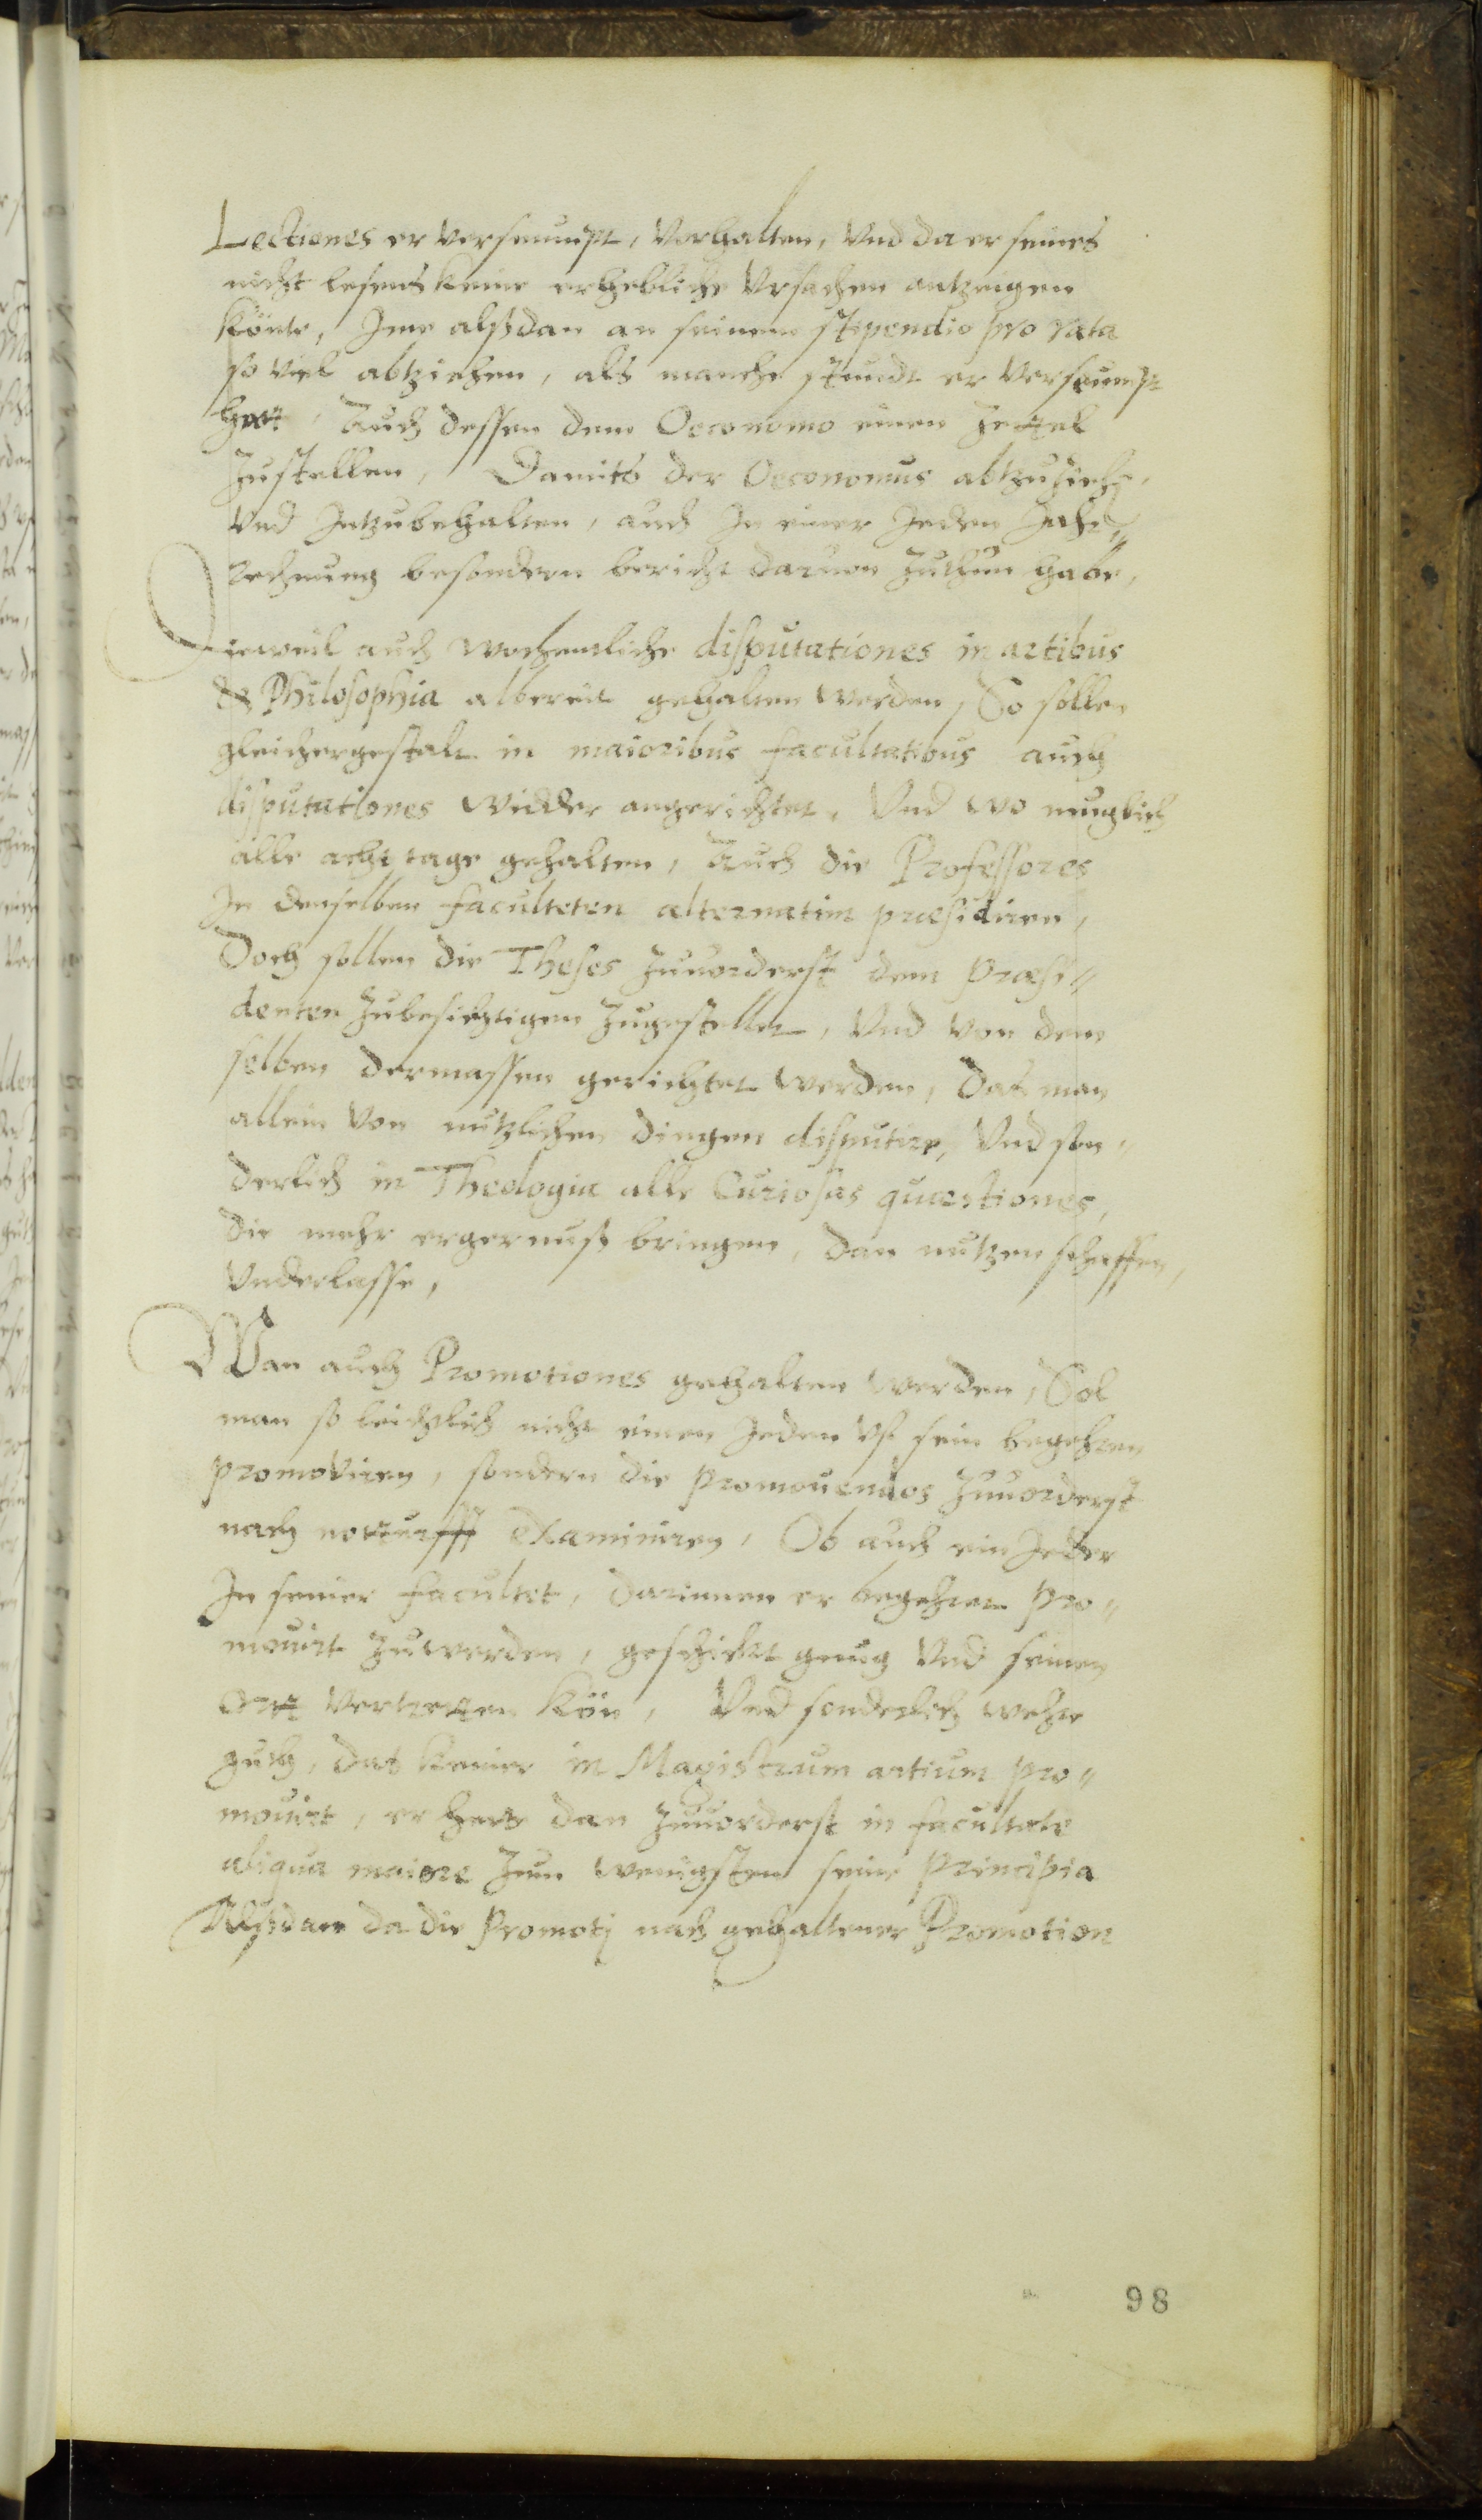 Lectiones er verseumpt, Vorhalten, Vnd da er seines
nicht lesens keine erhebliche Vrsachen antzeigen
könte, Ime alßdan an seinem stipendio pro rata
so viel abtziehen, als manche stundt er Verseumpt
hatt, Auch dessen dem Oeconomo einen Zettel
Zustellen, Damits der Oeconomus abtzuziehen,
Vnd Intzubehalten, auch In einer Jeden Jahr„
rechnung besondern bericht daruon Zuthun habe,
Dieweil auch wochentliche disputationes in artibus
& Philosophia albereit gehalten werden, So sollen
gleichergestalt in maioribus facultatibus auch
disputationes widder angerichtet, Vnd wo muglich
alle acht tage gehalten, Auch die Professores
In denselben faculteten alternatim præsidiren,
Doch sollen die Theses Zuuorderst dem Præsi„
denten Zubesichtigen Zugestellet, Vnd von dem
selben dermassen gerichtet werden, Das man
allein von nutzlichen dingen disputire, Vnd son„
derlich in Theologia alle Curiosas quæstiones,
die mehr ergernuß bringen, dan nutzen schaffen,
Vnderlasse,
Wan auch Promotiones gehalten werden, Sol
man so leichtlich nicht einen Jeden vf sein begehren
promoviren, sondern die promouendos Zuuorderst
nach notturfft examiniren, Ob auch ein Jeder
In seiner facultet, darinnen er begehret pro„
mouirt Zuwerden, geschickt genug Vnd seinen
ortt Vertretten kön, Vnd sonderlich wehre
guth, das keiner in Magistrum artium pro„
mouirt, er hette dan Zuuorderst in facultate
aliqua maiore Zum wenigsten seine principia
Alßdan da die Promoti nach gehaltener Promotion
98